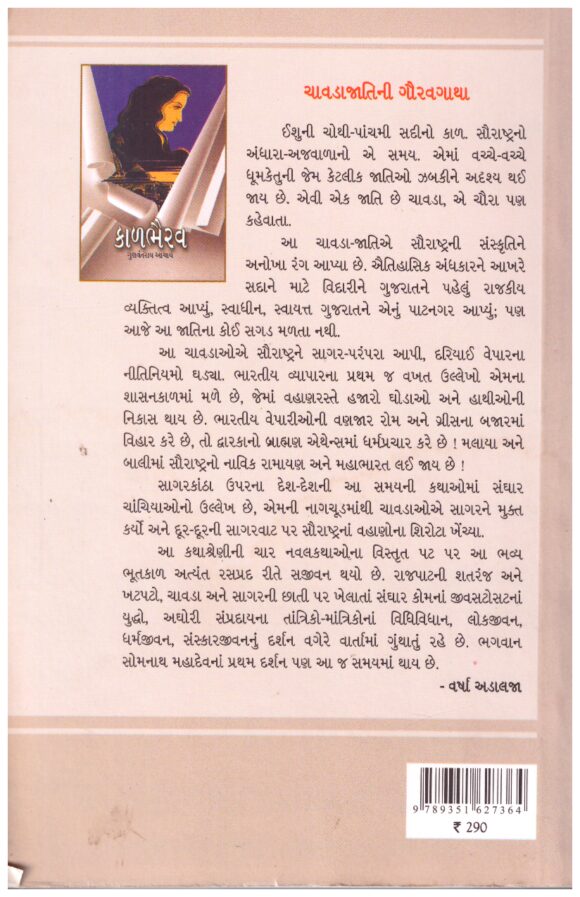 ચાવડાજાતિની ગૌરવગાથા
ઈશુની ચોથી-પાંચમી સદીનો કાળ. સૌરાષ્ટ્રનો
અંધારા-અજવાળાનો એ સમય. એમાં વચ્ચે-વચ્ચે
ધૂમકેતુની જેમ કેટલીક જાતિઓ ઝબકીને અદશ્ય થઈ
જાય છે. એવી એક જાતિ છે ચાવડા, એ ચૌરા પણ
કહેવાતા.
કાળભૈરવ
ગુણવંતરાય આચાર્ય
આ ચાવડા-જાતિએ સૌરાષ્ટ્રની સંસ્કૃતિને
અનોખા રંગ આપ્યા છે. ઐતિહાસિક અંધકારને આખરે
સદાને માટે વિદારીને ગુજરાતને પહેલું રાજકીય
વ્યક્તિત્વ આપ્યું, સ્વાધીન, સ્વાયત્ત ગુજરાતને એનું પાટનગર આપ્યું; પણ
આજે આ જાતિના કોઈ સગડ મળતા નથી.
આ ચાવડાઓએ સૌરાષ્ટ્રને સાગર-પરંપરા આપી, દરિયાઈ વેપારના
નીતિનિયમો ઘડ્યા. ભારતીય વ્યાપારના પ્રથમ જ વખત ઉલ્લેખો એમના
શાસનકાળમાં મળે છે, જેમાં વહાણરસ્તે હજારો ઘોડાઓ અને હાથીઓની
નિકાસ થાય છે. ભારતીય વેપારીઓની વણજાર રોમ અને ગ્રીસના બજારમાં
વિહાર કરે છે, તો દ્વારકાનો બ્રાહ્મણ એથેન્સમાં ધર્મપ્રચાર કરે છે ! મલાયા અને
બાલીમાં સૌરાષ્ટ્રનો નાવિક રામાયણ અને મહાભારત લઈ જાય છે !
સાગરકાંઠા ઉપરના દેશ-દેશની આ સમયની કથાઓમાં સંઘાર
ચાંચિયાઓનો ઉલ્લેખ છે, એમની નાગચૂડમાંથી ચાવડાઓએ સાગરને મુક્ત
કર્યો અને દૂર-દૂરની સાગરવાટ પર સૌરાષ્ટ્રનાં વહાણોના શિરોટા ખેંચ્યા.
આ કથાશ્રેણીની ચાર નવલકથાઓના વિસ્તૃત પટ પર આ ભવ્ય
ભૂતકાળ અત્યંત રસપ્રદ રીતે સજીવન થયો છે. રાજપાટની શતરંજ અને
ખટપટો, ચાવડા અને સાગરની છાતી પર ખેલાતાં સંઘાર કોમનાં જીવસટોસટનાં
યુદ્ધો, અઘોરી સંપ્રદાયના તાંત્રિકો-માંત્રિકોનાં વિધિવિધાન, લોકજીવન,
ધર્મજીવન, સંસ્કારજીવનનું દર્શન વગેરે વાર્તામાં ગૂંથાતું રહે છે. ભગવાન
સોમનાથ મહાદેવનાં પ્રથમ દર્શન પણ આ જ સમયમાં થાય છે.
- વર્ષા અડાલજા
9 789351 627364
₹ 290